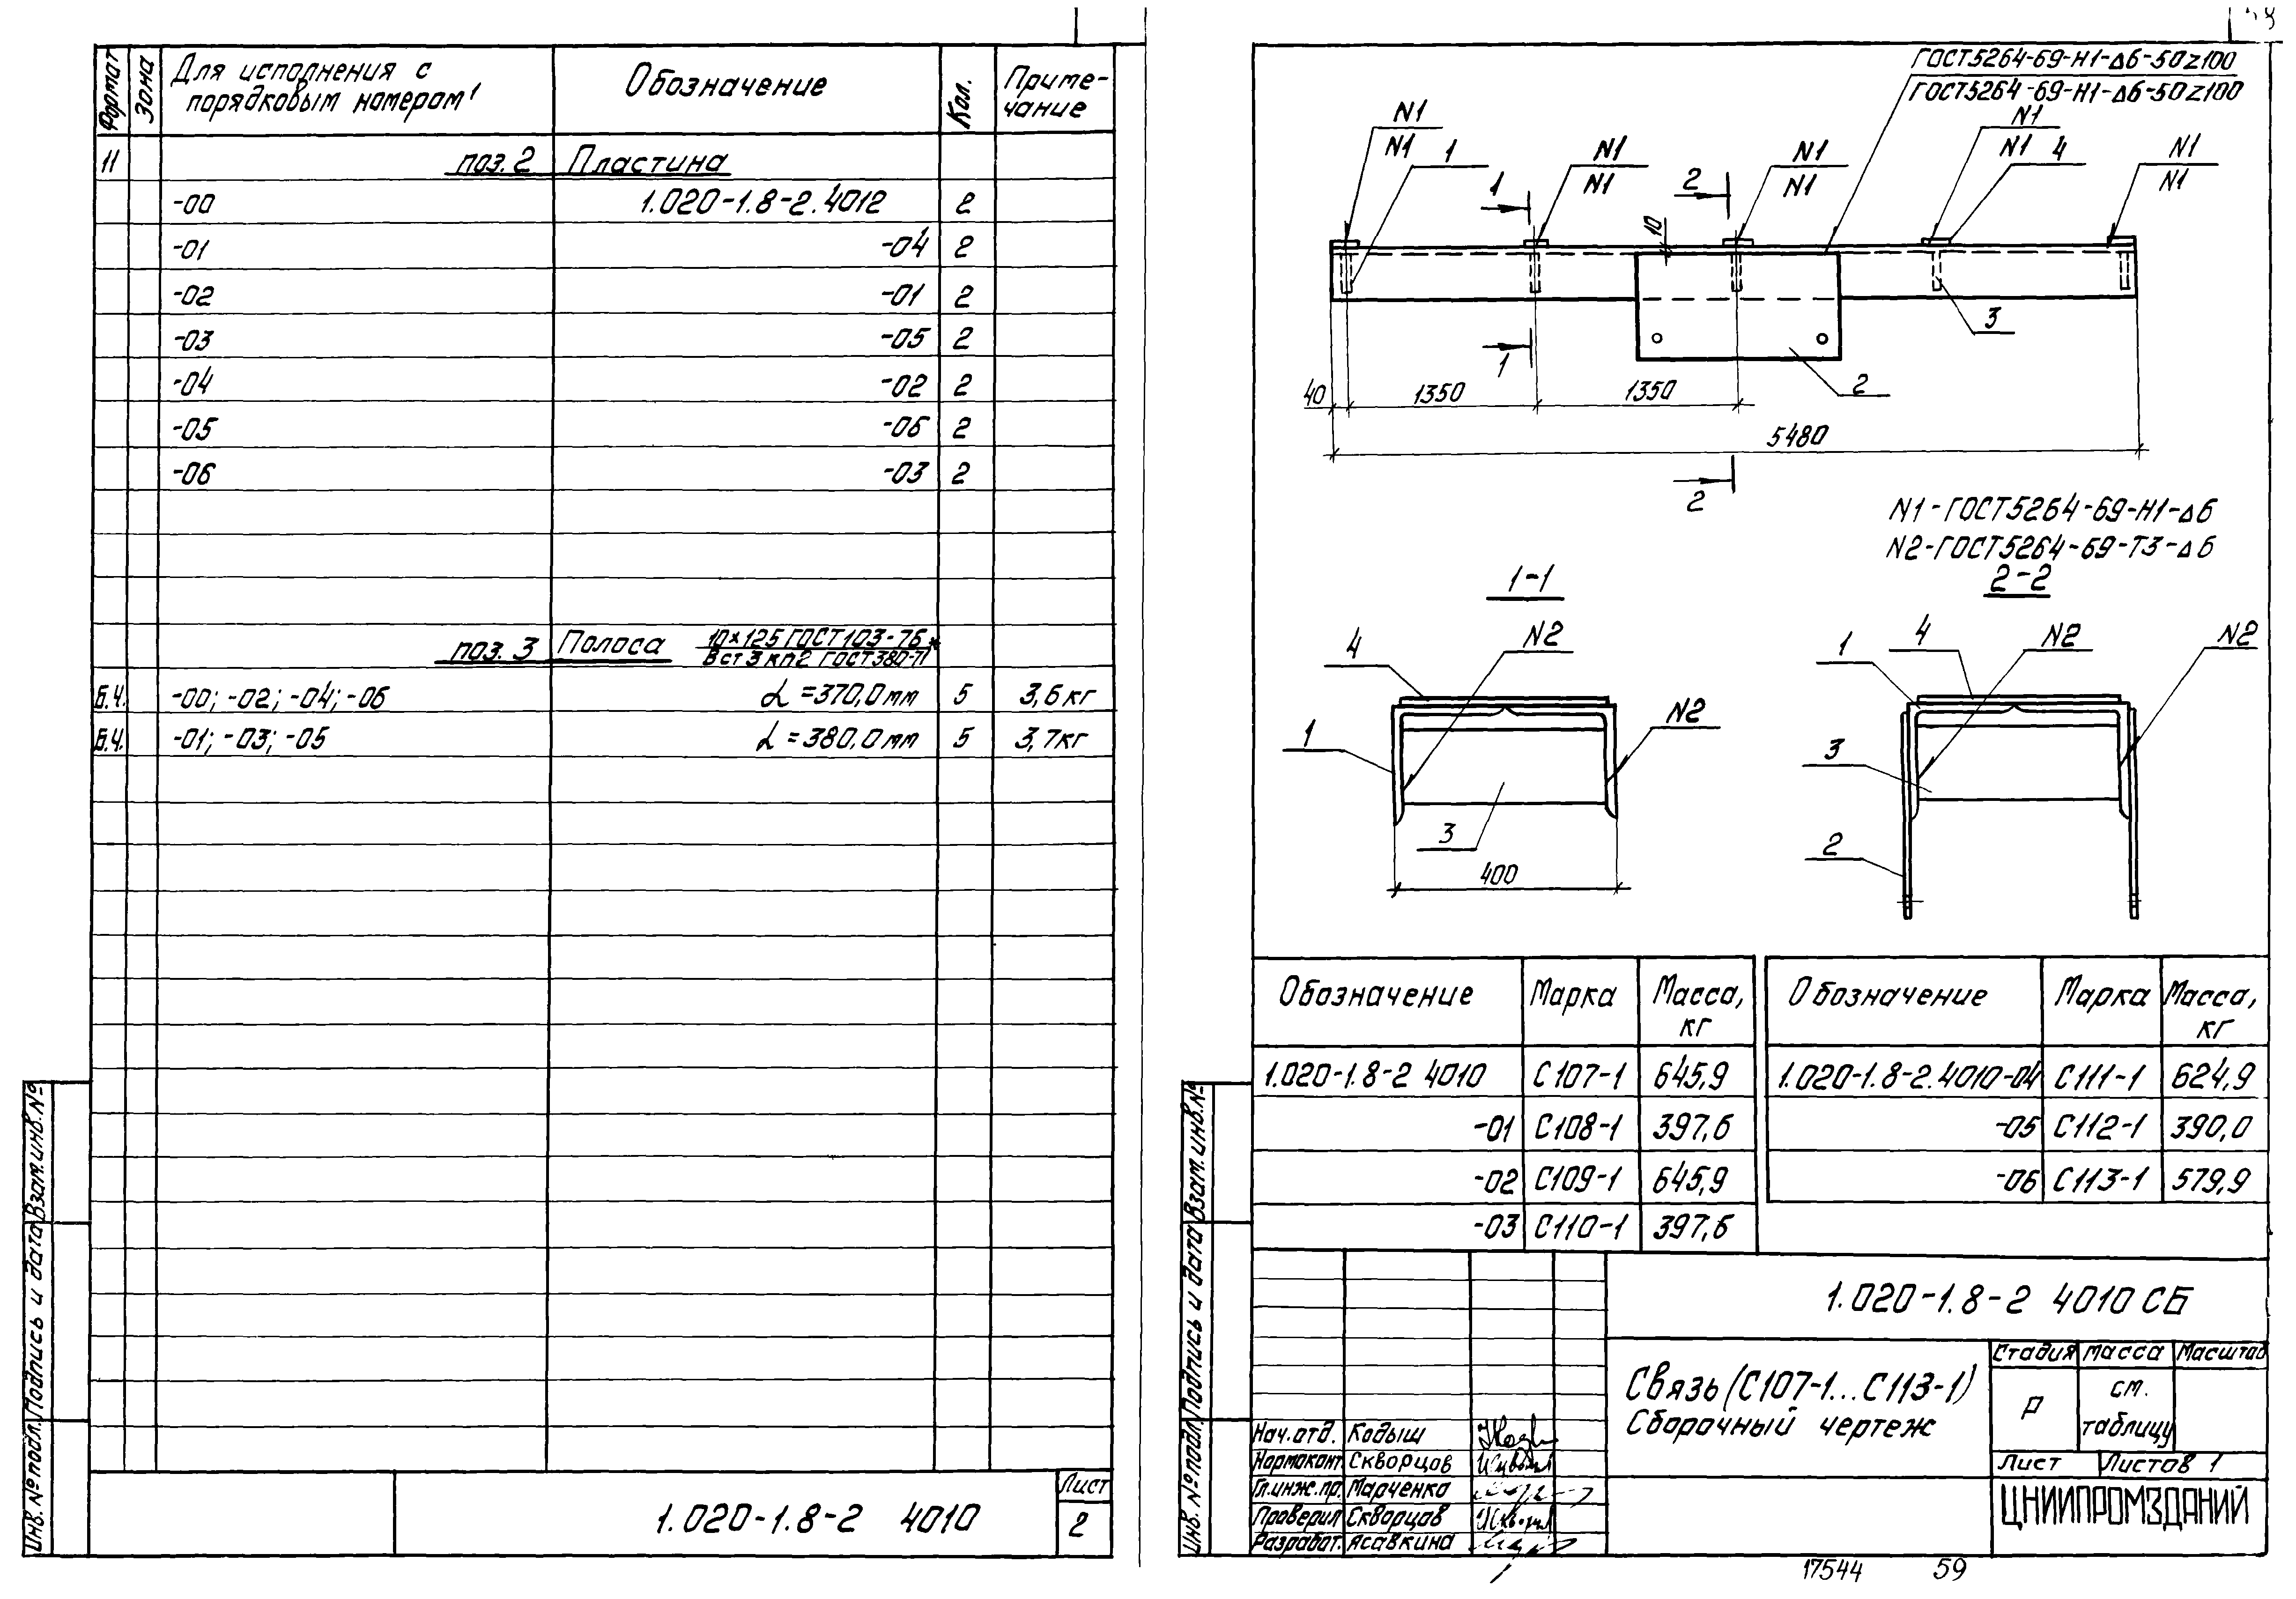 Формат
Зона
Для исполнения с
порядковым номером
Обозначение
Кол.
Приме-
чание
11
поз. 2 Пластина
-00 1.020-1.8-2.4012 2
-01 -04 2
-02 -01 2
-03 -05 2
-04 -02 2
-05 -06 2
-06 -03 2
поз. 3 Полоса 10×125 ГОСТ 103-76*
Вст3кп2 ГОСТ 380-71
Б.Ч. -00; -02; -04; -06 L=370,0мм 5 3,6кг
Б.Ч. -01; -03; -05 L=380,0мм 5 3,7кг
Инв.№подл.
Подпись и дата
Взам.инв.№
1.020-1.8-2 4010
Лист
2
ГОСТ5264-69-Н1-Δ6-50Z100
ГОСТ5264-69-Н1-Δ6-50Z100
N1
N1
1
N1
N1
N1
N1
N1
N1
4
N1
N1
1
2
10
3
1
2
40
1350
1350
5480
2
N1-ГОСТ5264-69-Н1-Δ6
N2-ГОСТ5264-69-Т3-Δ6
1-1
2-2
4
N2
N2
1
3
400
1
4
N2
N2
3
2
Обозначение Марка Масса, кг
1.020-1.8-2 4010 С107-1 645,9
-01 С108-1 397,6
-02 С109-1 645,9
-03 С110-1 397,6
Обозначение Марка Масса, кг
1.020-1.8-2.4010-04 С111-1 624,9
-05 С112-1 390,0
-06 С113-1 579,9
Инв.№подл.
Подпись и дата
Взам.инв.№
1.020-1.8-2 4010 СБ
Связь (С107-1...С113-1)
Сборочный чертеж
Стадия Масса Масштаб
Р см. таблицу
Лист Листов 1
ЦНИИПРОМЗДАНИЙ
Нач.отд. Кодыш
Нормоконт Скворцов
Гл.инж.пр. Марченко
Проверил Скворцов
Разработ. Ясавкина
17544 59